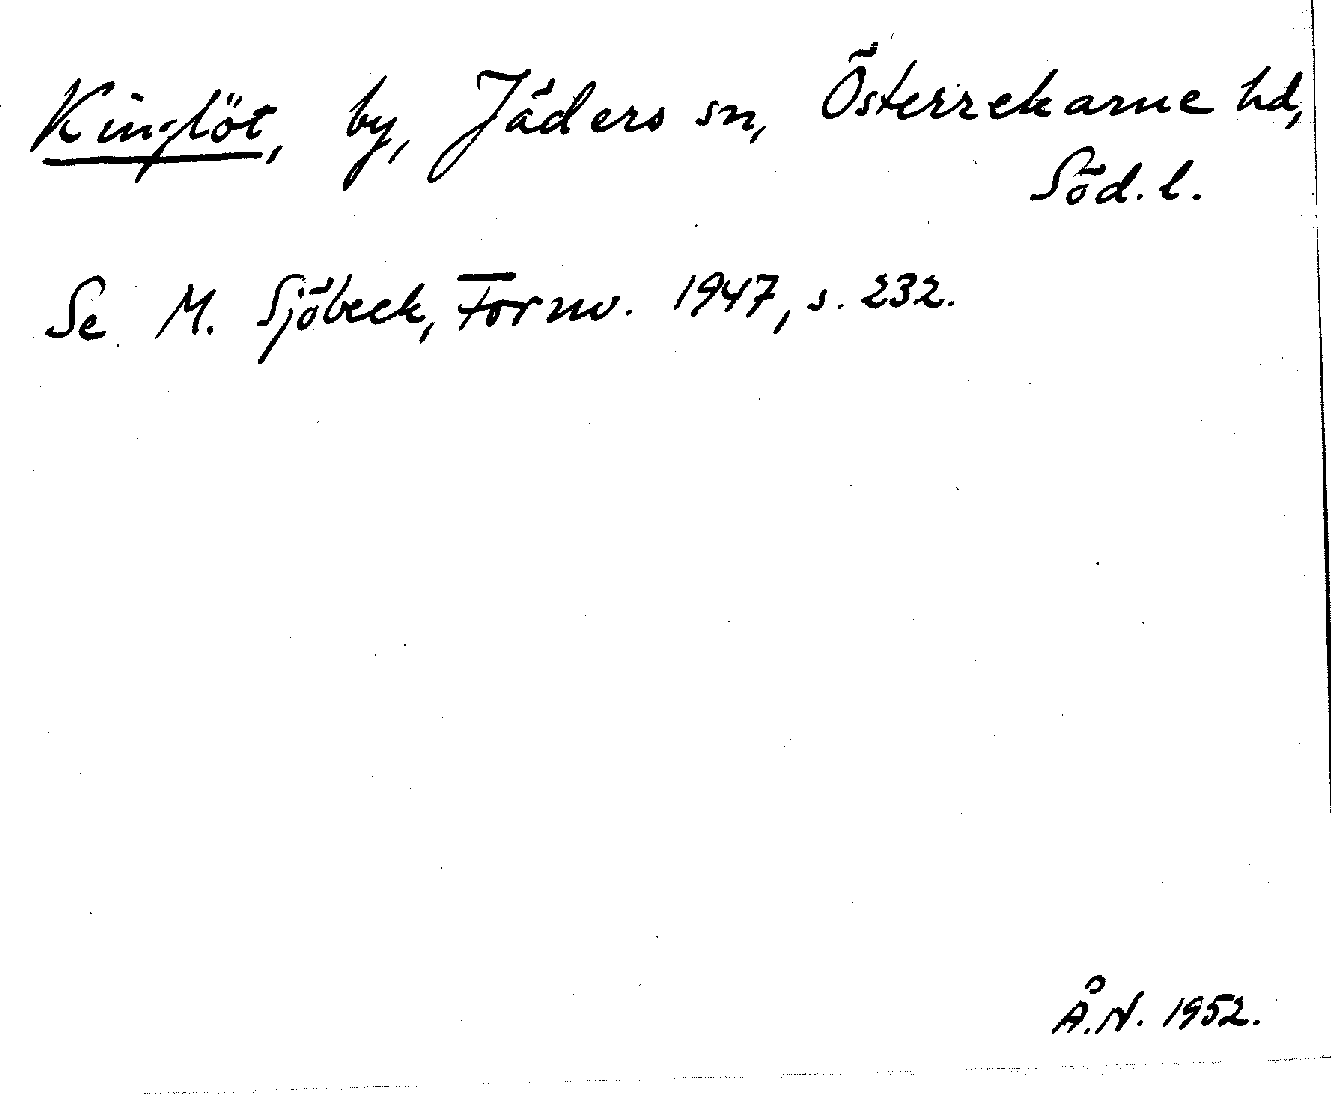 Kinglöt, by, Jäders sn, Österrekarne hd,
Söd. l.
Se M. Sjöbeck, Fornv. 1947, s. 232.
Å.N. 1952.